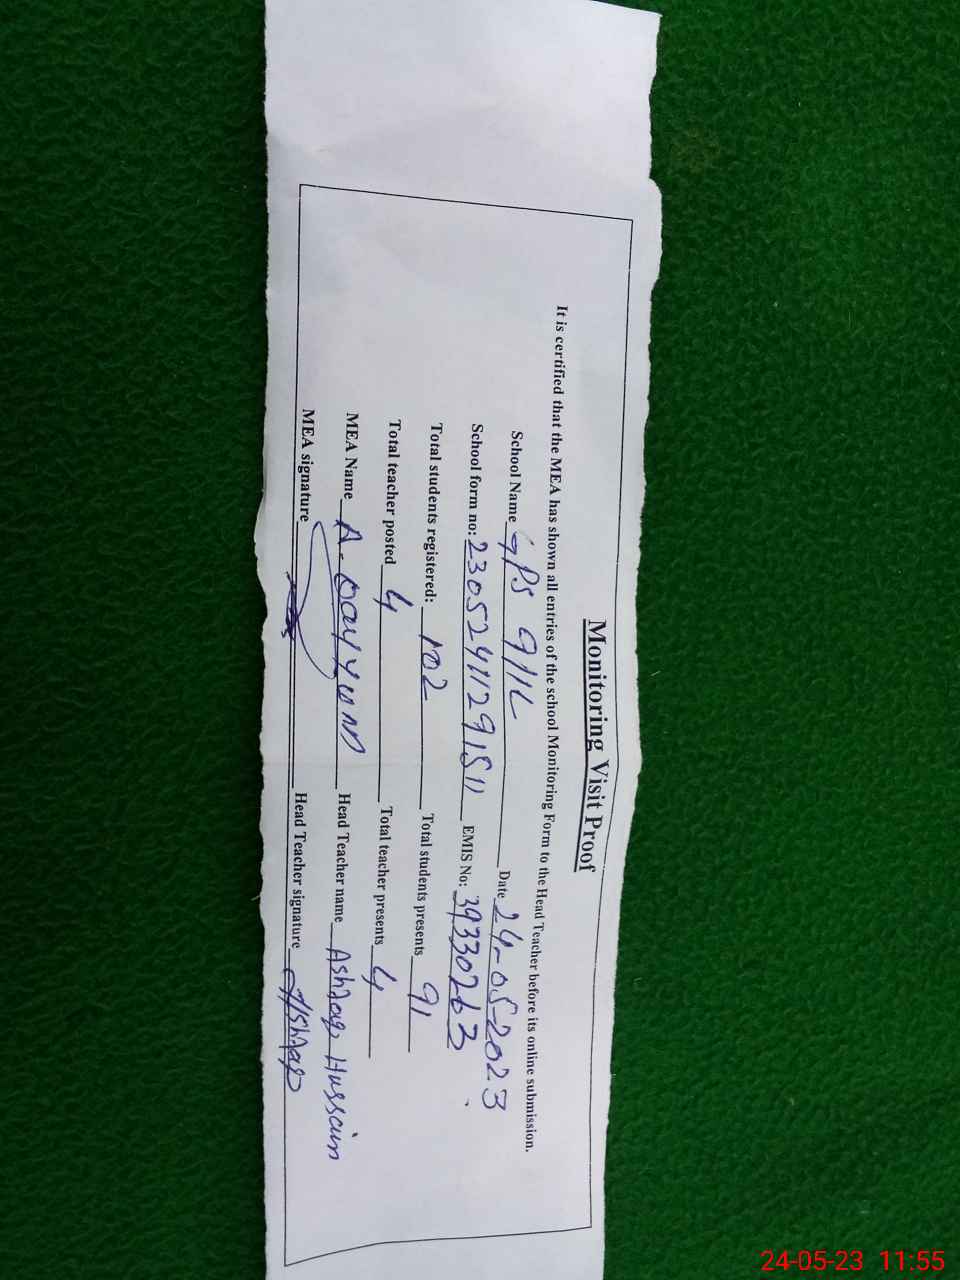 Monitoring Visit Proof
It is certified that the MEA has shown all entries of the school Monitoring Form to the Head Teacher before its online submission.
School Name GPS 9/1L Date 24-05-2023
School form no: 23052411291511 EMIS No: 39330263
Total students registered: 102 Total students presents 91
Total teacher posted 4 Total teacher presents 4
MEA Name A. Qayyum Head Teacher name Ashfaq Hussain
MEA signature Head Teacher signature Ashfaq
24-05-23 11:55